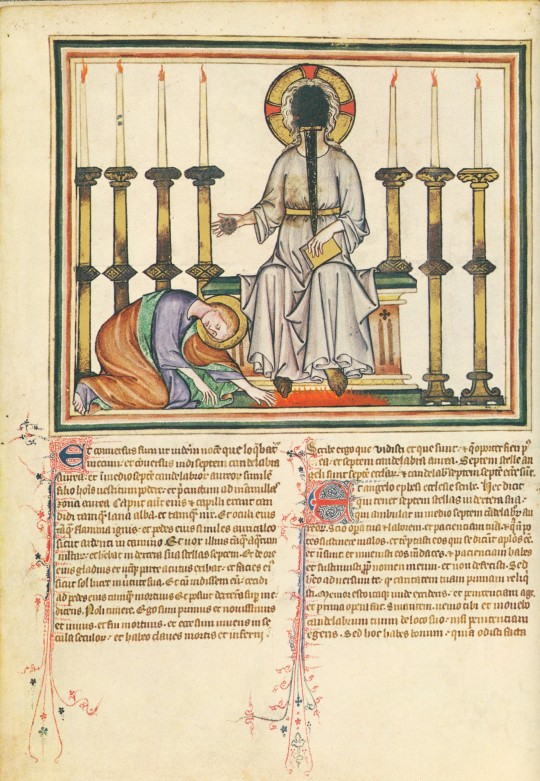 Et conversus sum ut viderem vocē que loqbat᷒
mecum: et conversus vidi septem candelabra
aurea. et in medio septem candelabroꝝ aureoꝝ simile
filio hoīs vestitum podere: et p̄cinctum ad mamillas
zona aurea. Caput aūt eius et capilli erant can
didi tamq̄ lana alba. et tamq̄ nix. Et oculi eius
tamq̄ flamma ignis: et pedes eius similes auricalco
sicut ardenti in camino. Et vox illius tamq̄ aquaꝝ
multaꝝ: et habebat in dextera sua stellas septem. Et de ore
eius gladius ex utraq; parte acutus exibat: et facies eius
sicut sol lucet in virtute sua. Et cū vidissem eū: cecidi
ad pedes eius tamq̄ mortuus. Et posuit dexterā sup me
dicens. Noli timere. Ego sum primus et novissimus
et vivus. et fui mortuus. et ecce sum vivens in se
cula seculoꝝ: et habeo claves mortis et inferni.
Scribe ergo que vidisti et que sunt. et q̄ oportet fieri p᷒
ea. et septem candelabra aurea. Septem stelle an
geli sunt septē eccīaꝝ: et candelabra septem septē ecc̄e sunt.
Et angelo ephesi ecclesie scribe. Hec dicit
qui tenet septem stellas in dextera sua.
qui ambulat in medio septem cādelabꝝ au
reoꝝ. Scio opera tua et laborem. et pacienciam tuā. et quia nō potes
sustinere malos. et tēptasti eos qui se dicūt aplōs eē.
et nō sunt. et invenisti eos mēdaces. et pacienciam habes
et sustinuisti ꝓp̄t nomen meum. et non defecisti. Sed
habeo adversum te. qd caritatem tuam primam reliq
sti. Memor esto itaq; unde excideris. et penitenciam age.
et prima opera fac. Sin autem. venio tibi et movebo
candelabrum tuum de loco suo. nisi penitenciam
egeris. Sed hoc habes bonum. quia odisti facta